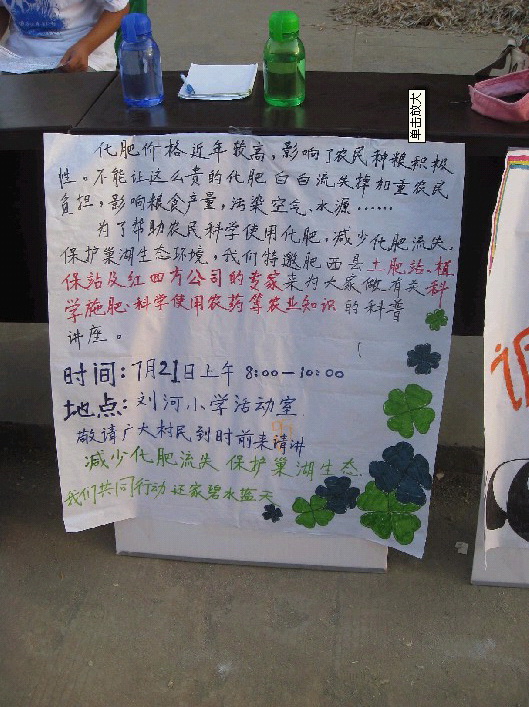 化肥价格近年较高，影响了农民种粮积极
性。不能让这么贵的化肥白白流失掉加重农民
负担，影响粮食产量，污染空气、水源……
为了帮助农民科学使用化肥，减少化肥流失，
保护巢湖生态环境，我们特邀肥西县土肥站、植
保站及红四方公司的专家来为大家做有关科
学施肥、科学使用农药等农业知识的科普
讲座。
时间：7月21日上午 8:00—10:00
地点：刘河小学活动室
敬请广大村民到时前来请讲
减少化肥流失 保护巢湖生态
我们共同行动 还家碧水蓝天
单击放大